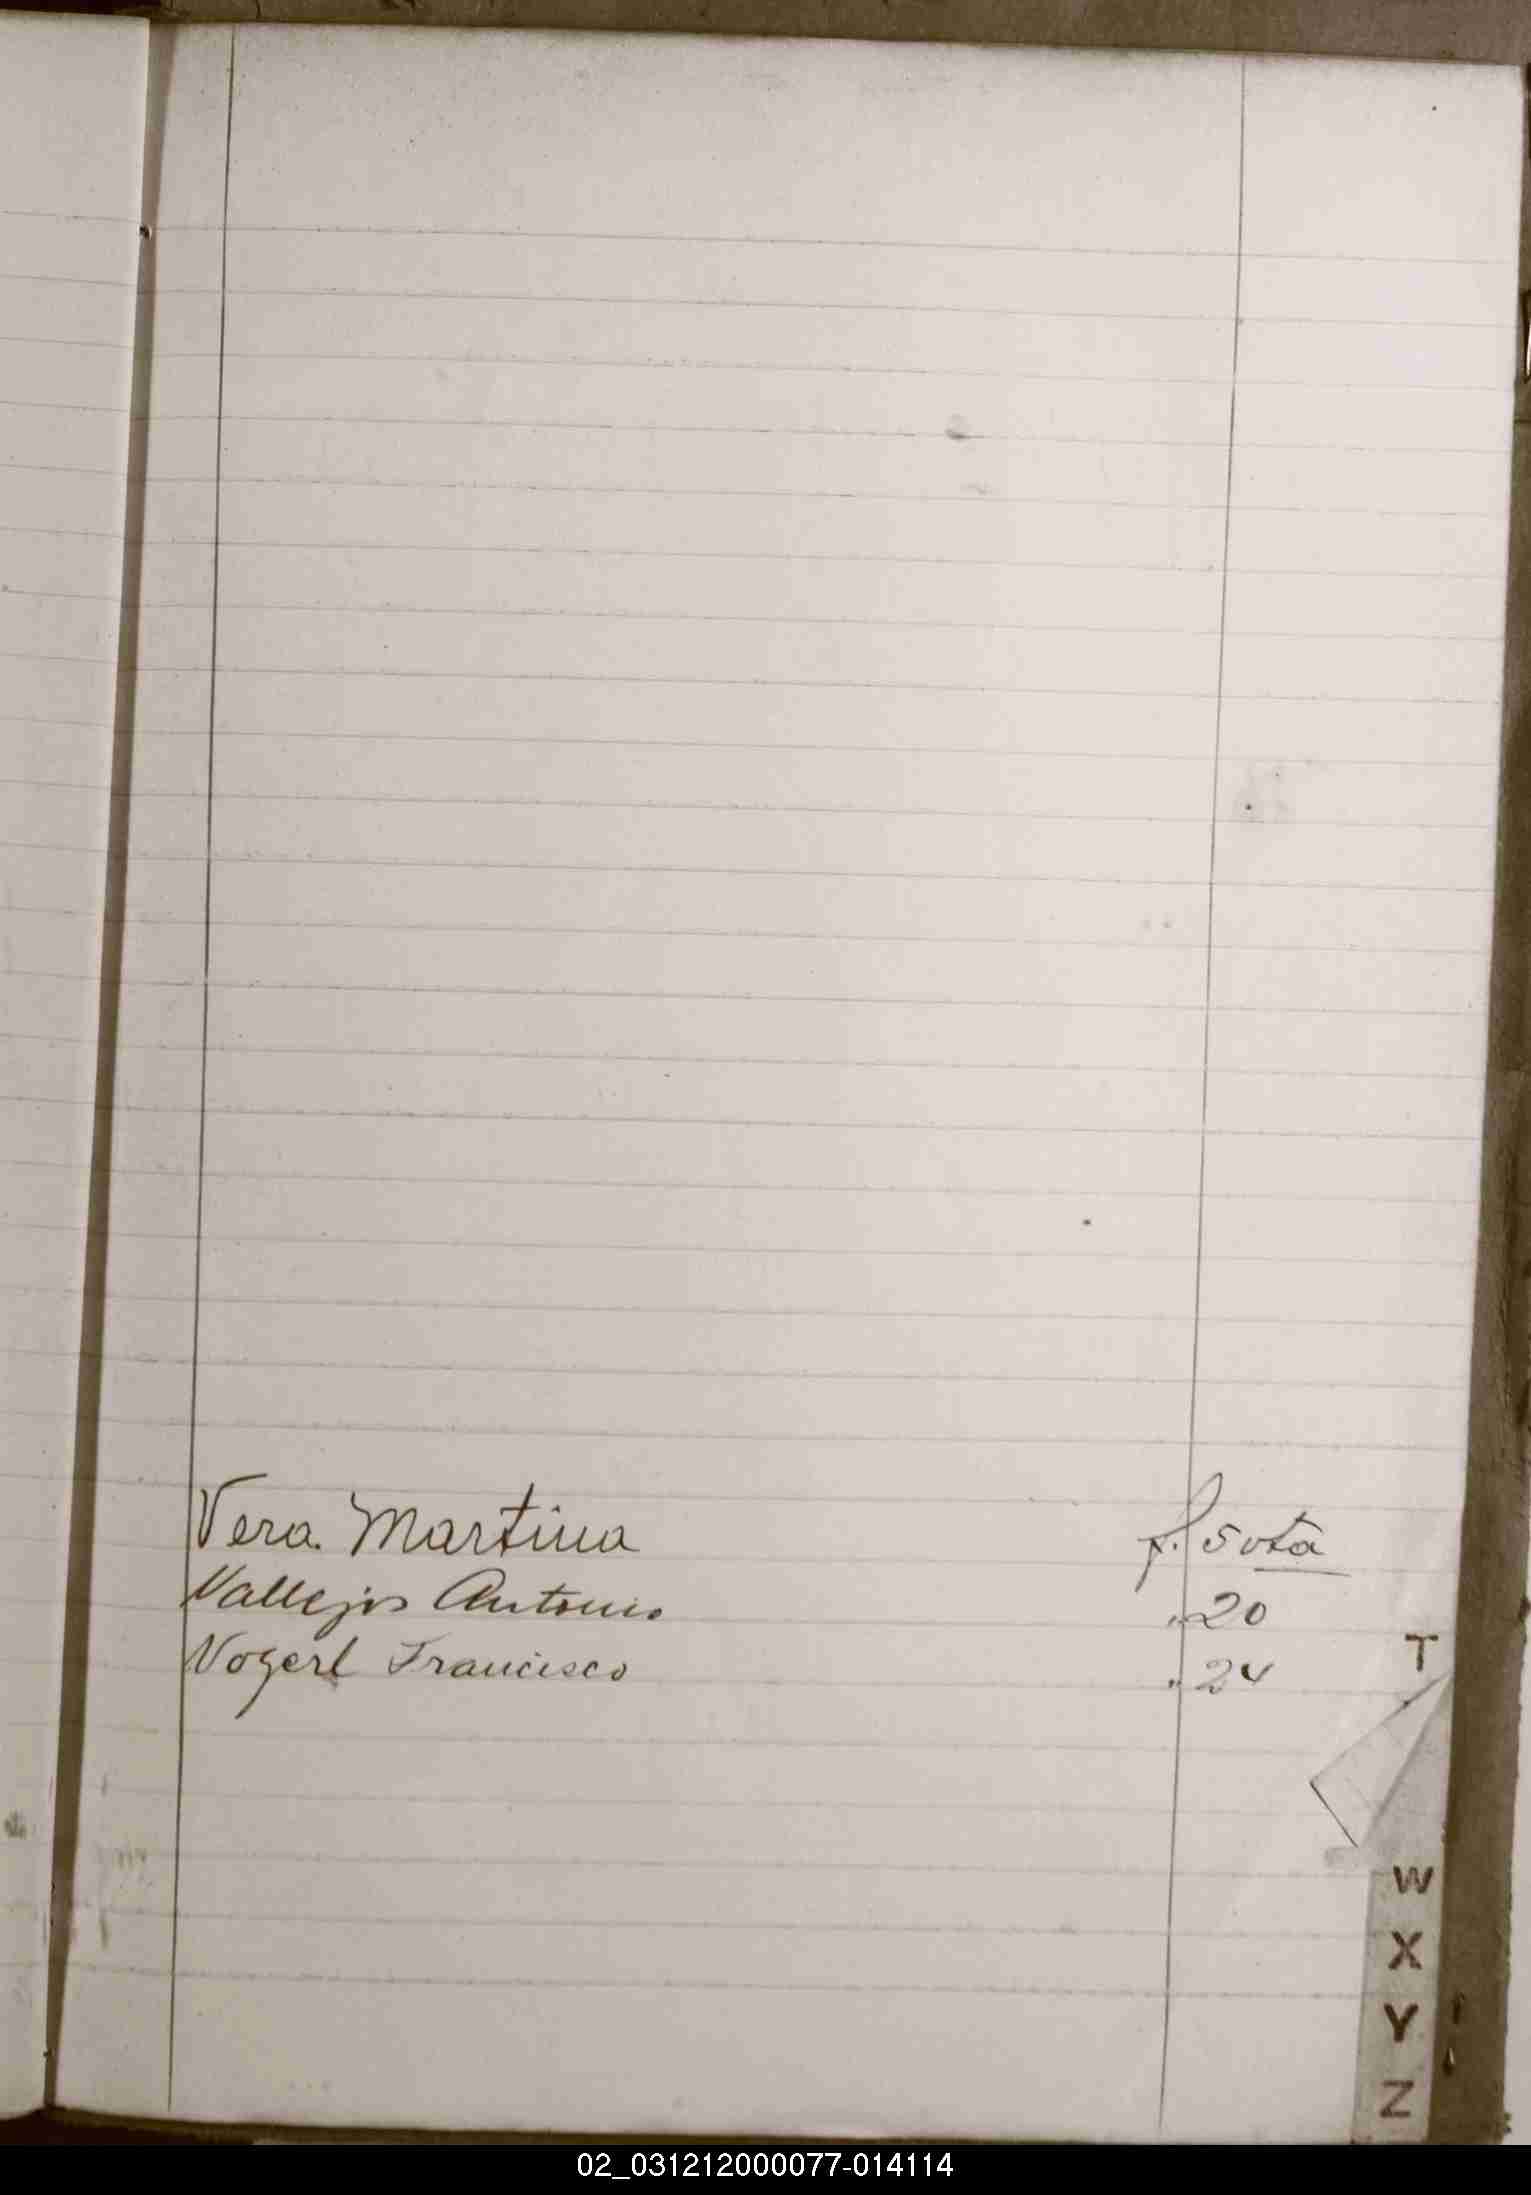 Vera Martina f. 5 vta
Vallejos Antonio " 20
Vogerl Francisco " 24
T
W
X
Y
Z
02_031212000077-014114